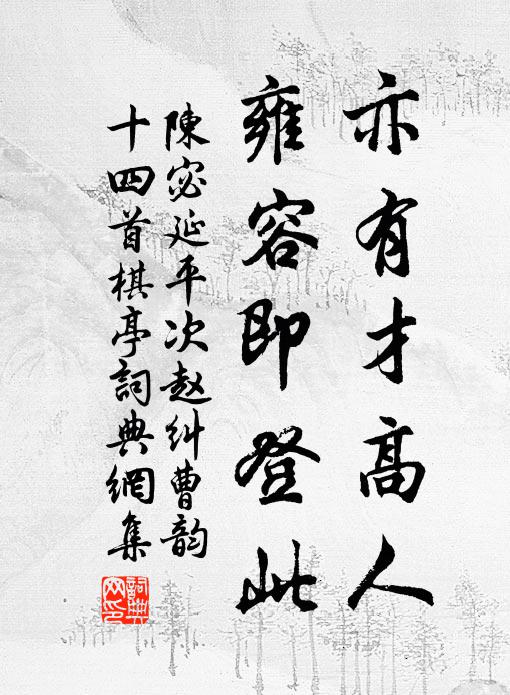 亦有才高人
雍容即登此
陳宓延平次赵纠曹韵
十四首棋亭詞典網集